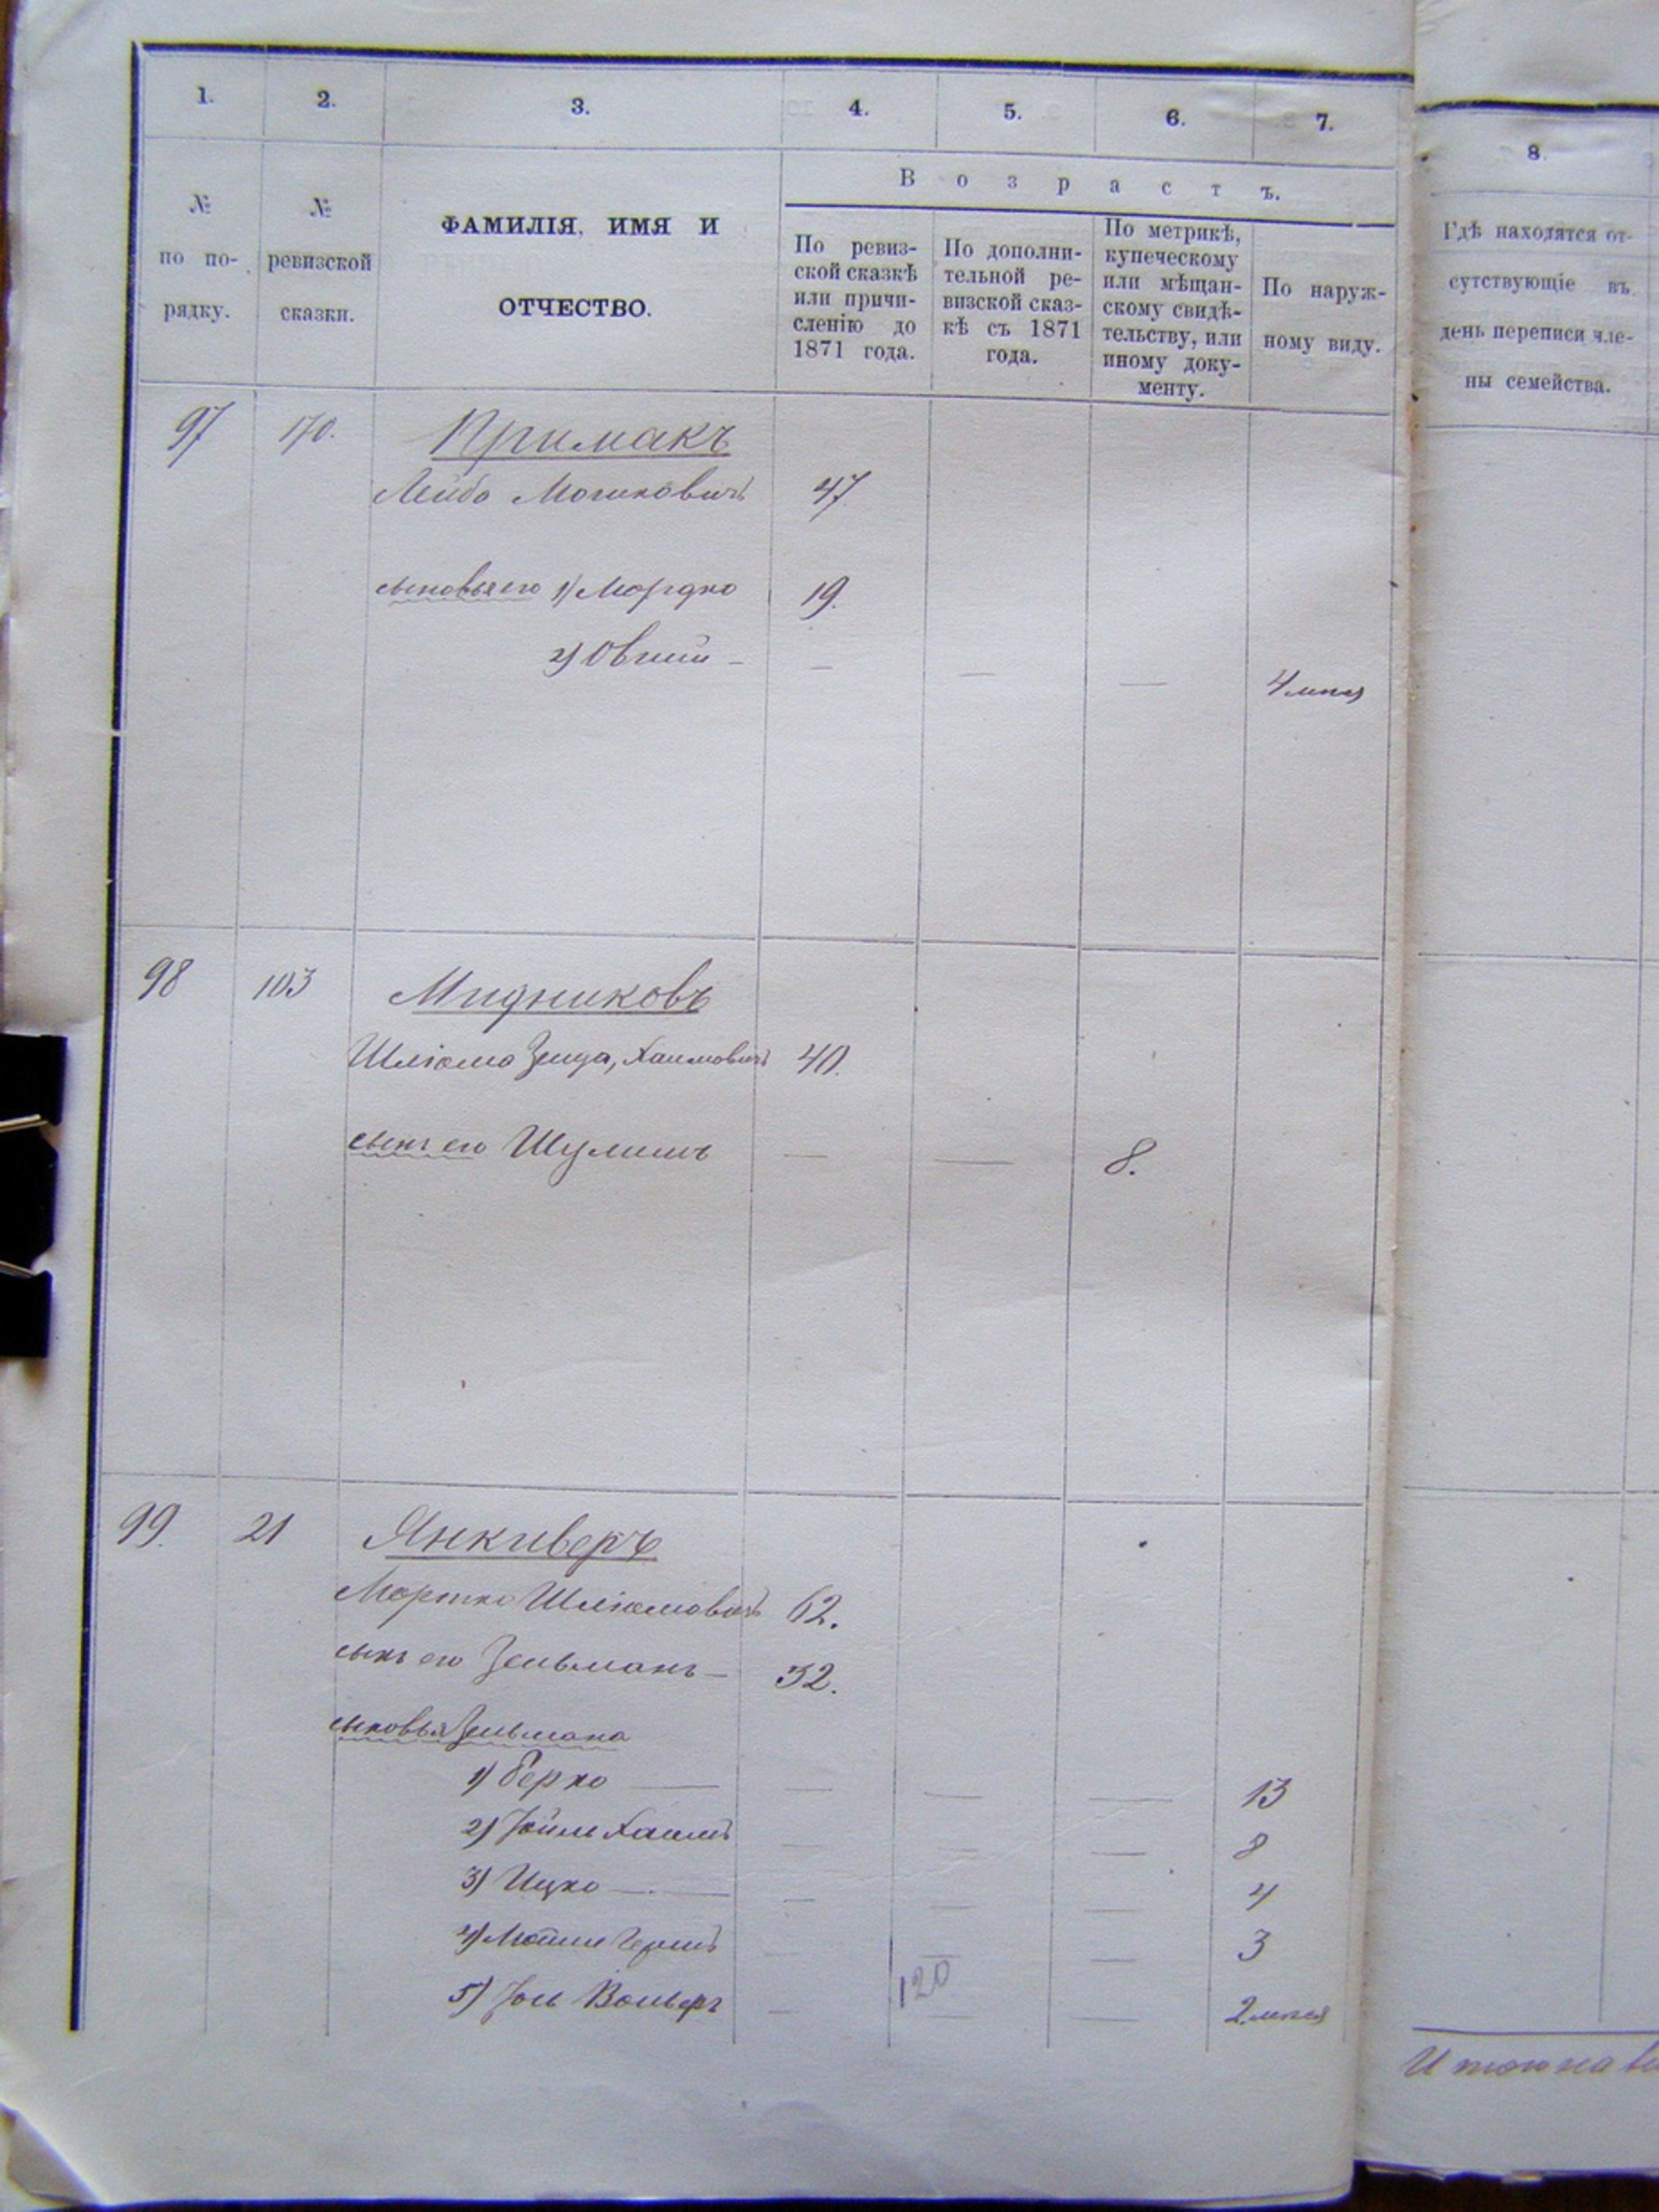 1. 2. 3. 4. 5. 6. 7.
8.
№ по по-рядку.
№ ревизской сказки.
ФАМИЛІЯ, ИМЯ И
ОТЧЕСТВО.
Возрастъ.
По ревиз-
ской сказкѣ
или причи-
сленію до
1871 года.
По дополни-
тельной ре-
визской сказ-
кѣ съ 1871
года.
По метрикѣ,
купеческому
или мѣщан-
скому свидѣ-
тельству, или
иному доку-
менту.
По наруж-
ному виду.
Гдѣ находятся от-
сутствующіе въ
день переписи чле-
ны семейства.
97 170. Примакъ
Лейба Мошковичъ 47
сыновья его 1) Мордко 19.
2) Овший — — — — 4 мѣся
98 103 Мидниковъ
Шліома Зейда, Хаимовичъ 40.
сынъ его Шулимъ — — 8.
99. 21 Янкиверъ
Мортко Шліомовичъ 62.
сынъ его Зельманъ — 32.
сыновья Зельмана
1) Берко — — — — 13
2) Хаимъ — — — 8
3) Ицко — — — — 4
4) — — — 3
5) Вольфъ — — — 2 мѣся
120
Итого на